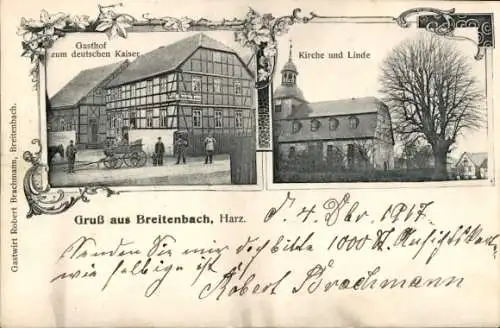 Gasthof
zum deutschen Kaiser.
Kirche und Linde
Gastwirt Robert Brachmann, Breitenbach.
Gruß aus Breitenbach, Harz.
d. 4 Dbr. 1917.
Senden Sie mir doch bitte 1000 St. Ansichtskart.
wie selbige ist
Robert Brachmann